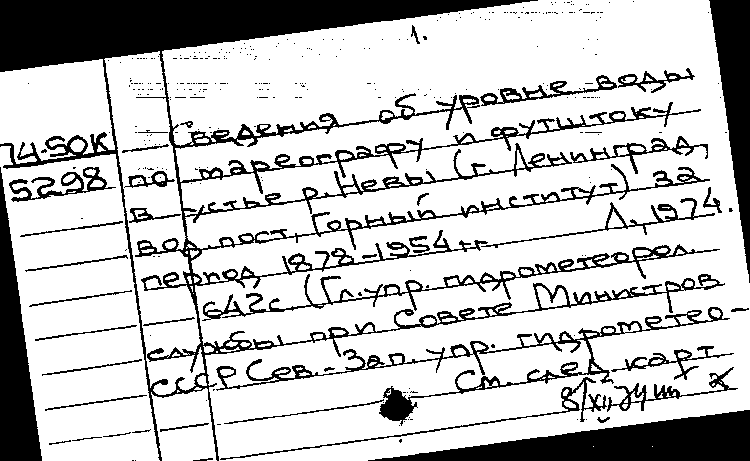 1.
74-50К
5298
Сведения об уровне воды
по мареографу и футштоку
в устье р. Невы (г. Ленинград,
вод. пост, Горный институт) за
период 1878-1954 гг. Л., 1974.
642с. (Гл. упр. гидрометеорол.
службы при Совете Министров
СССР Сев.-Зап. упр. гидрометео-
См. след. карт
8/XII